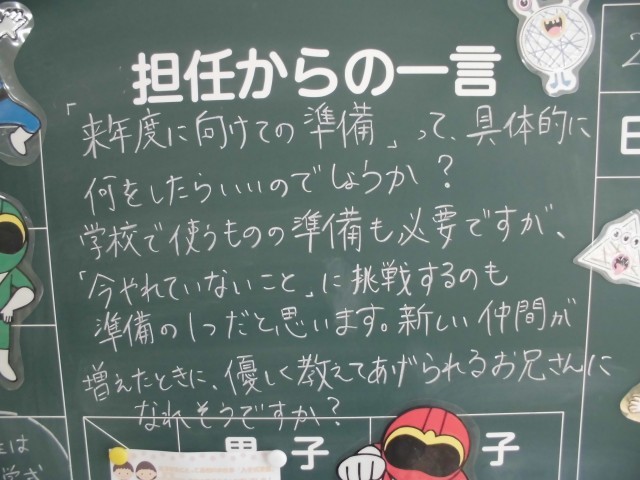 担任からの一言
「来年度に向けての準備」って、具体的に
何をしたらいいのでしょうか?
学校で使うものの準備も必要ですが、
「今やれていないこと」に挑戦するのも
準備の1つだと思います。新しい仲間が
増えたときに、優しく教えてあげられるお兄さんに
なれそうですか?
男子
子
2
日